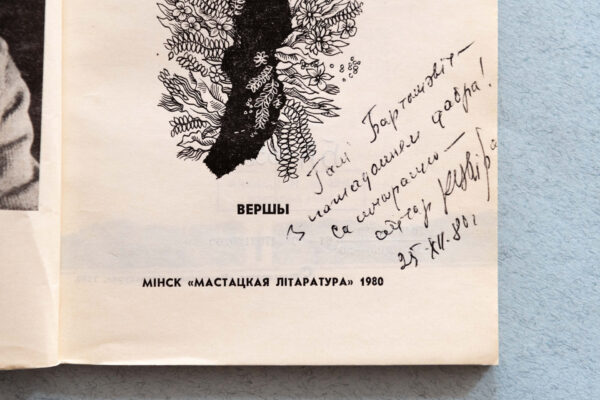 ВЕРШЫ
МІНСК «МАСТАЦКАЯ ЛІТАРАТУРА» 1980
Галі Бартошэвіч —
З пажаданнем дабра!
аўтар
25-XII-80 г